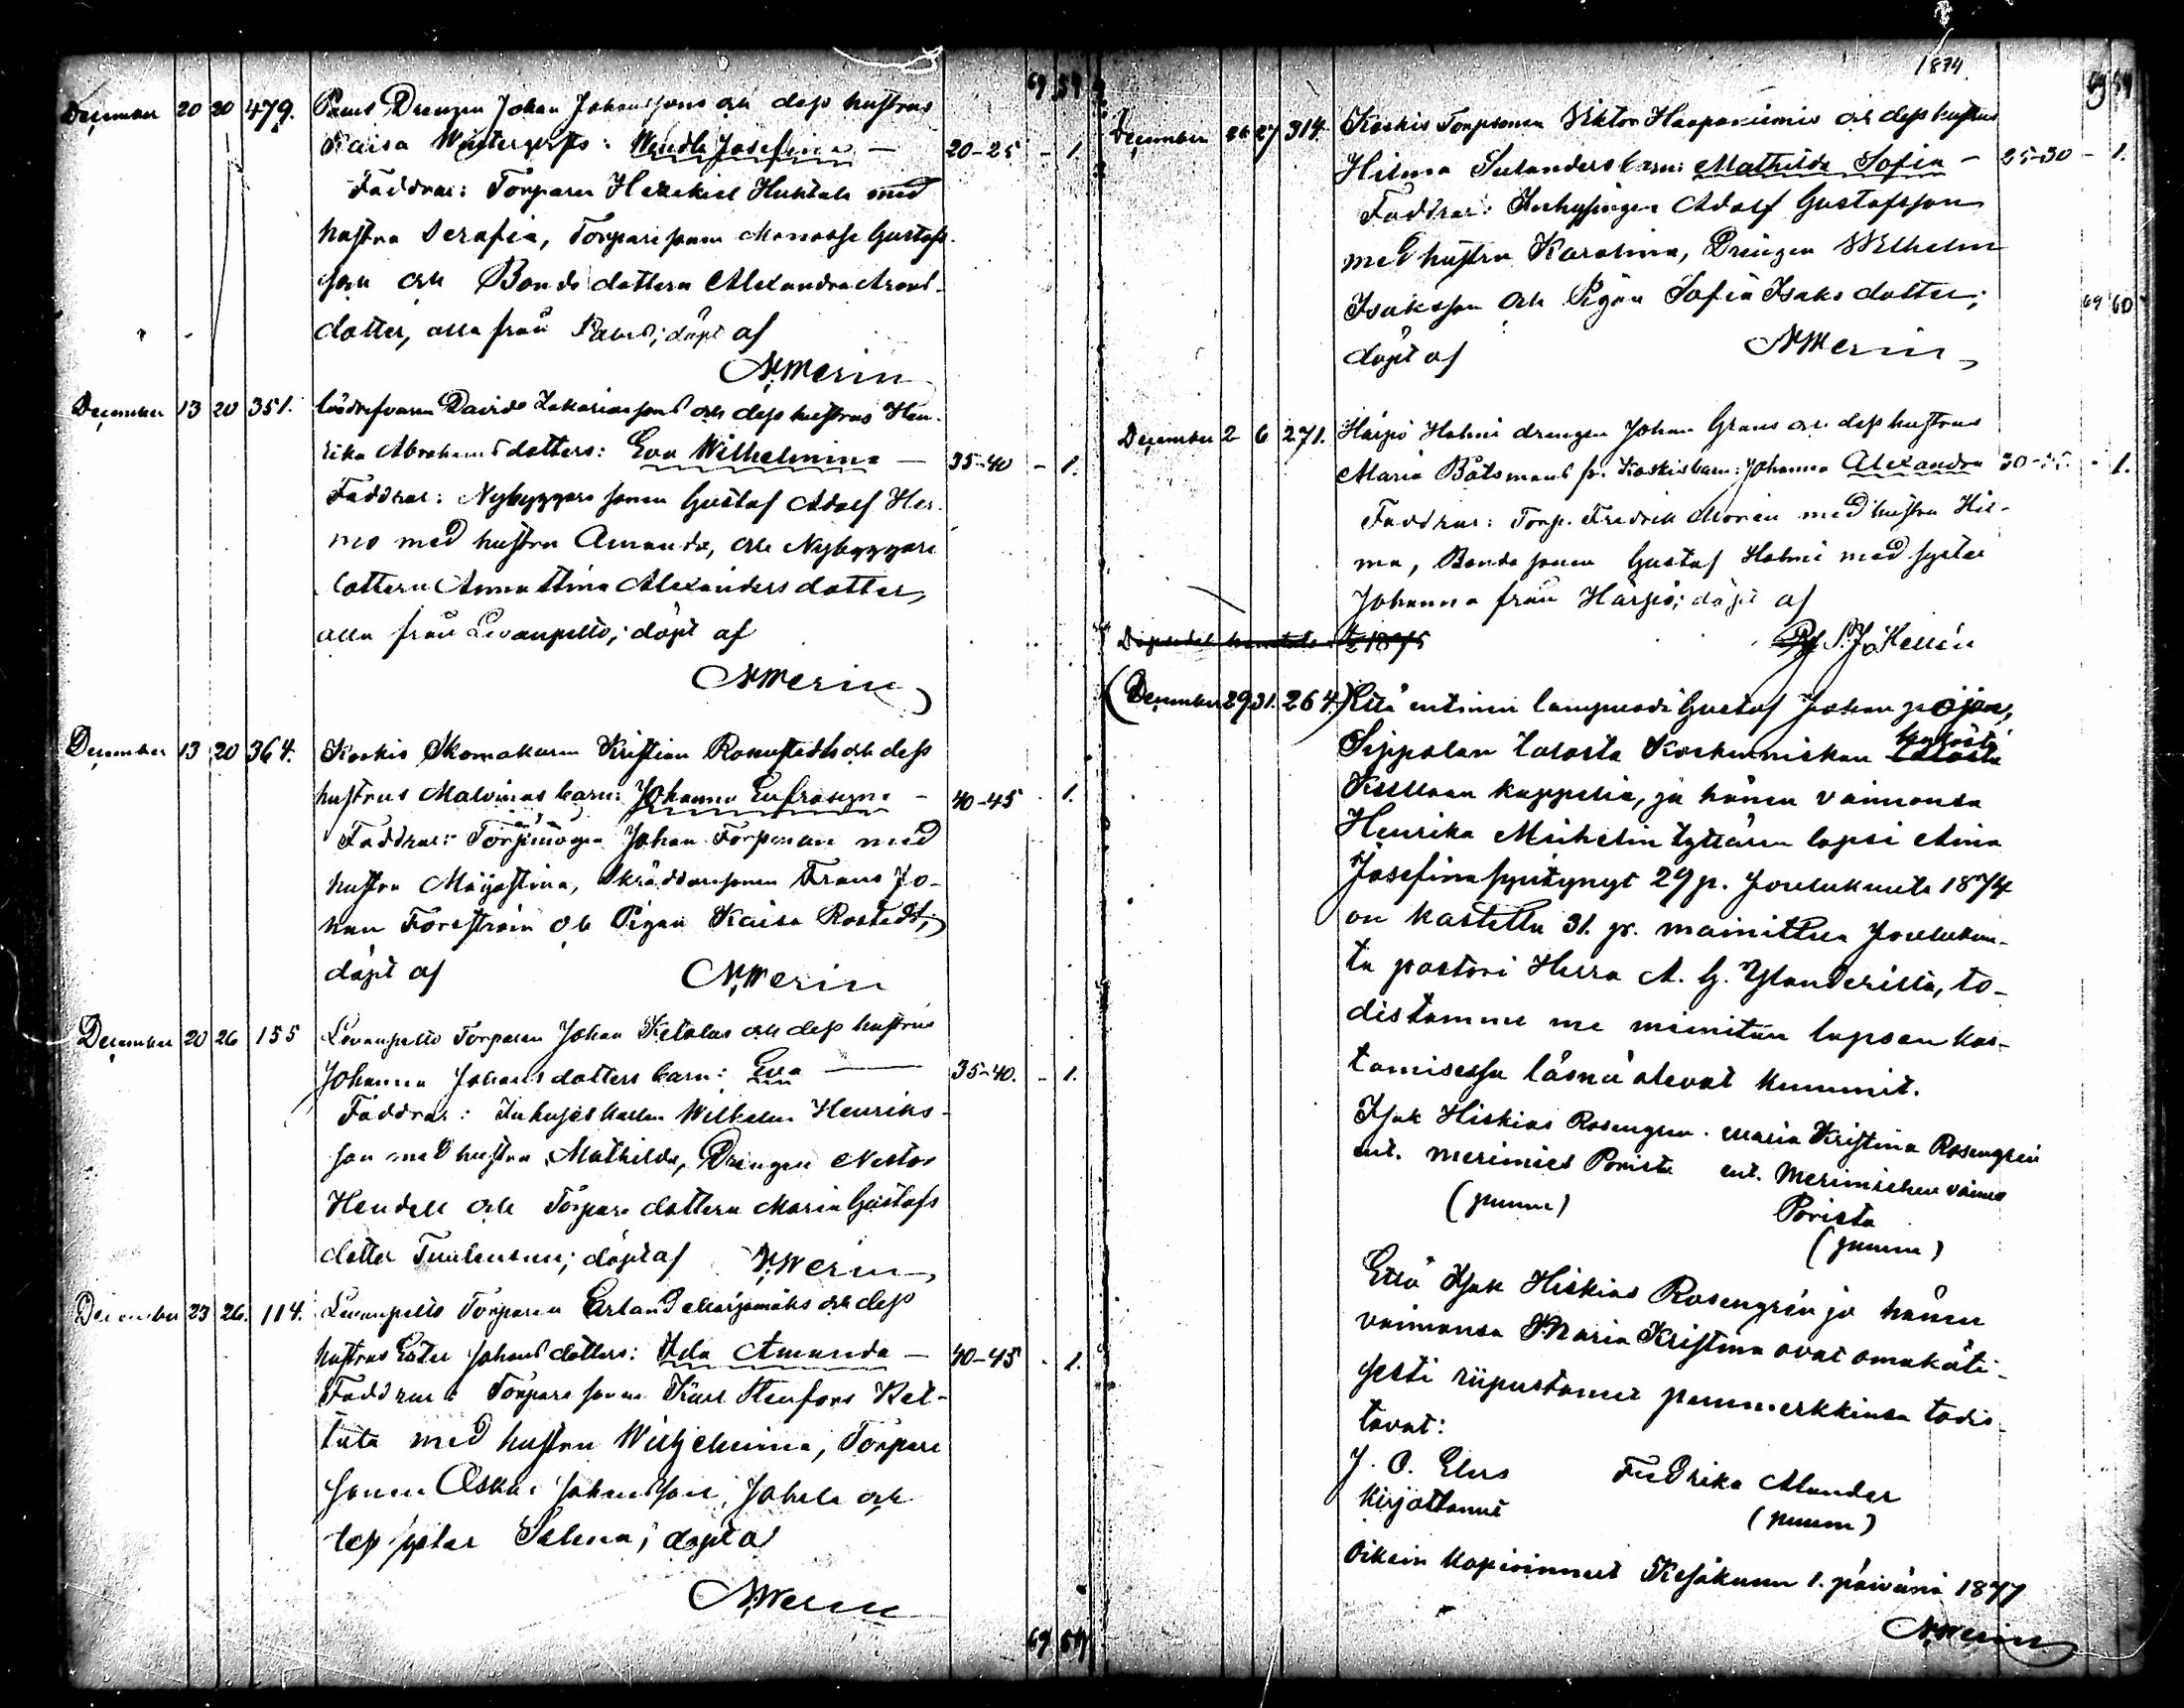 69 54
December 20 20 479. Paus Drengen Johan Johanssons och dess hustrus
Kaisa Wintergrens: Wendla Josefina — 20-25 - 1.
Faddrar: Torparen Hezekiel Huhtala med
hustru Serafia, Torparesonen Manasse Gustafs-
son och Bonde dottern Alexandra
dotter, alla från; döpt af
N. Merin
December 13 20 351. Davids Zakariassons och dess hustrus Hen-
rika Abrahamsdotters: Eva Wilhelmina — 35-40 - 1.
Faddrar: Nybyggare sonen Gustaf Adolf Her-
mo med hustru Amanda, och Nybyggare
dottern Anna Stina Alexandersdotter,
alla från Levanpelto; döpt af
N. Merin
December 13 20 364. Koskis Skomakaren Kristian Rosenstedts och dess
hustrus Malvinas barn: Johanna Eufrosyne - 40-45 - 1.
Faddrar: Johan Forsman med
hustru Majastina, Skräddaresonen Frans Jo-
han Forsström och Pigan Kaisa Rostedt;
döpt af N. Merin
December 20 26 155 Levanpelto Torparen Johan Ketolas och dess hustrus
Johanna Johansdotters barn: Eva — 35-40. - 1.
Faddrar: Wilhelm Henriks-
son med hustru Mathilda, Drengen Nestor
Hendell och Torpare dottern Maria Gustafs
dotter; döpt af N. Merin
December 23 26. 114. Levanpelto Torparen Erland Marjamäks och dess
hustrus Ester Johansdotters: Ida Amanda — 40-45 - 1.
Faddrar: Torpare sonen Karl Stenfors Ket-
tula med hustru Wilhelmina, Torpare
sonen Oskar Johansson, och
dess syster Selma; döpt af
N. Merin
69 54
1874
69 54
December 26 27 314. Koskis Torpsonen Viktor Haapaniemis och dess hustrus
Hilma Sulanders barn: Mathilda Sofia - 25-30 - 1.
Faddrar: Inhysingen Adolf Gustafsson
med hustru Karolina, Drengen Wilhelm
Isaksson och Pigan Sofia Isaksdotter; 69 60
döpt af N. Merin
December 2 6 271. Härpö Holmi drengen Johan Grans och dess hustrus
Maria Båtsmans fr. Koskis barn: Johanna Alexandra - 1.
Faddrar: Torp. Fredrik Morin med hustru Hil-
ma, Bonde sonen Gustaf Holmi med syster
Johanna från Härpö; döpt af
1875 S. J. Hellén
(December 29 31. 264.) Että entinen lampuodi Gustaf Johan pojan,
Seppalan talosta Koskenniskan kylästä
Kiullaan kappelia, ja hänen vaimonsa
Henrika Mikelin tyttären lapsi Aina
Josefina syntynyt 29 p. Joulukuuta 1874
on kastettu 31. p. mainittua Jouluku-
ta pastori Herra A. G. Ylanderilta, to-
distamme me mainitun lapsen kas-
tamisessa läsnä olevat kummit.
Isak Hiskias Rosengren. Maria Kristina Rosengren
ent. merimies Porista ent. Merimiehen vaimo
(puum) Porista
(puum)
Että Isak Hiskias Rosengrén ja hänen
vaimonsa Maria Kristina ovat omakäti-
sesti riipustaneet puumerkkinsä todis-
tavat:
J. O. Elers Fredrika Alander
kirjottanut (puum)
Oikein kopioinnut Kesäkuun 1. päivänä 1877
N. Merin